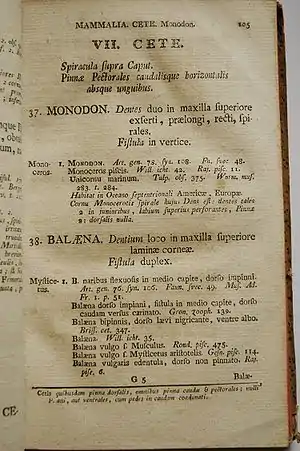 MAMMALIA. CETE. Monodon. 105
VII. CETE.
Spiracula supra Caput.
Pinnæ Pectorales caudalisque horizontalis
absque unguibus.
37. MONODON. Dentes duo in maxilla superiore
exserti, prælongi, recti, spi-
rales.
Fistula in vertice.
Mono- 1. MONODON. Art. gen. 78. syn. 108. Fn. svec. 48.
ceros. Monoceros piscis. Will. icht. 42. Raj. pisc. 11.
Unicornu marinum. Tulp. obs. 375. Worm. mus.
283. t. 284.
Habitat in Oceano septentrionali Americæ, Europæ
Cornu Monocerotis spirale hujus Dens est: dentes
2 in junioribus, labium superius perforantes, Pinna
dorsalis nulla.
38. BALÆNA. Dentium loco in maxilla superiore
laminæ corneæ.
Fistula duplex.
Mystice- 1. B. naribus flexuosis in medio capite, dorso impinni.
tus. Art. gen. 76. syn. 106. Faun. svec. 49. Mus. Ad.
Fr. 1. p. 51.
Balæna dorso impinni, fistula in medio capite, dorso
caudam versus carinato. Gron. zooph. 139.
Balæna bipinnis, dorso lævi nigricante, ventre albo.
Briss. cet. 347.
Balæna. Will. icht. 35.
Balæna vulgo f. Musculus. Rond. pisc. 475.
Balæna vulgo f. Mysticetus aristotelis. Gesn. pisc. 114.
Balæna vulgaris edentula, dorso non pinnato. Raj.
pisc. 6.
G 5 Balæ-
Cetis quibusdam pinna dorsalis, omnibus pinna caudæ & pectorales; nulli
ani, aut ventrales, cum pedes in caudam coadunati.
CE-